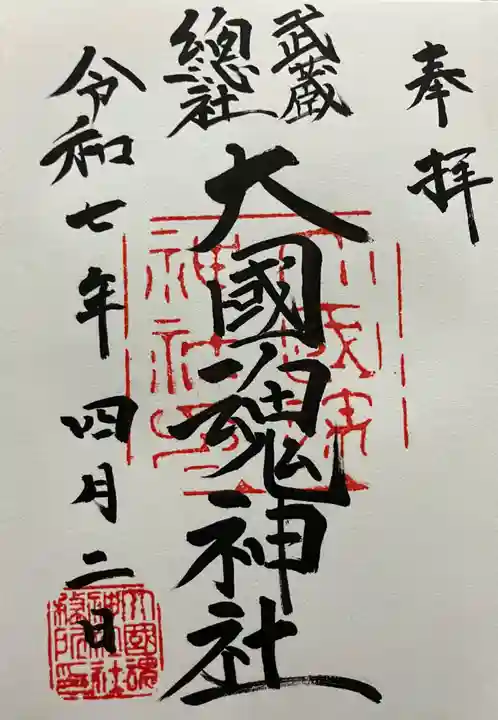 奉拝
武蔵
總社
大國魂神社
令和七年四月二日
大國魂
神社